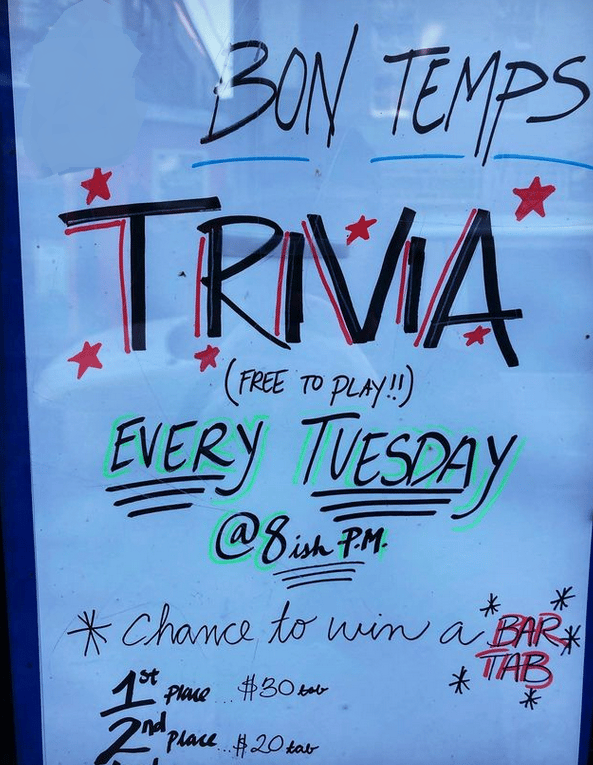 BON TEMPS
TRIVIA
(FREE TO PLAY!!)
EVERY TUESDAY
@ 8ish P.M.
* Chance to win a *BAR*
*TAB*
1st place... $30 tab
2nd place... $20 tab